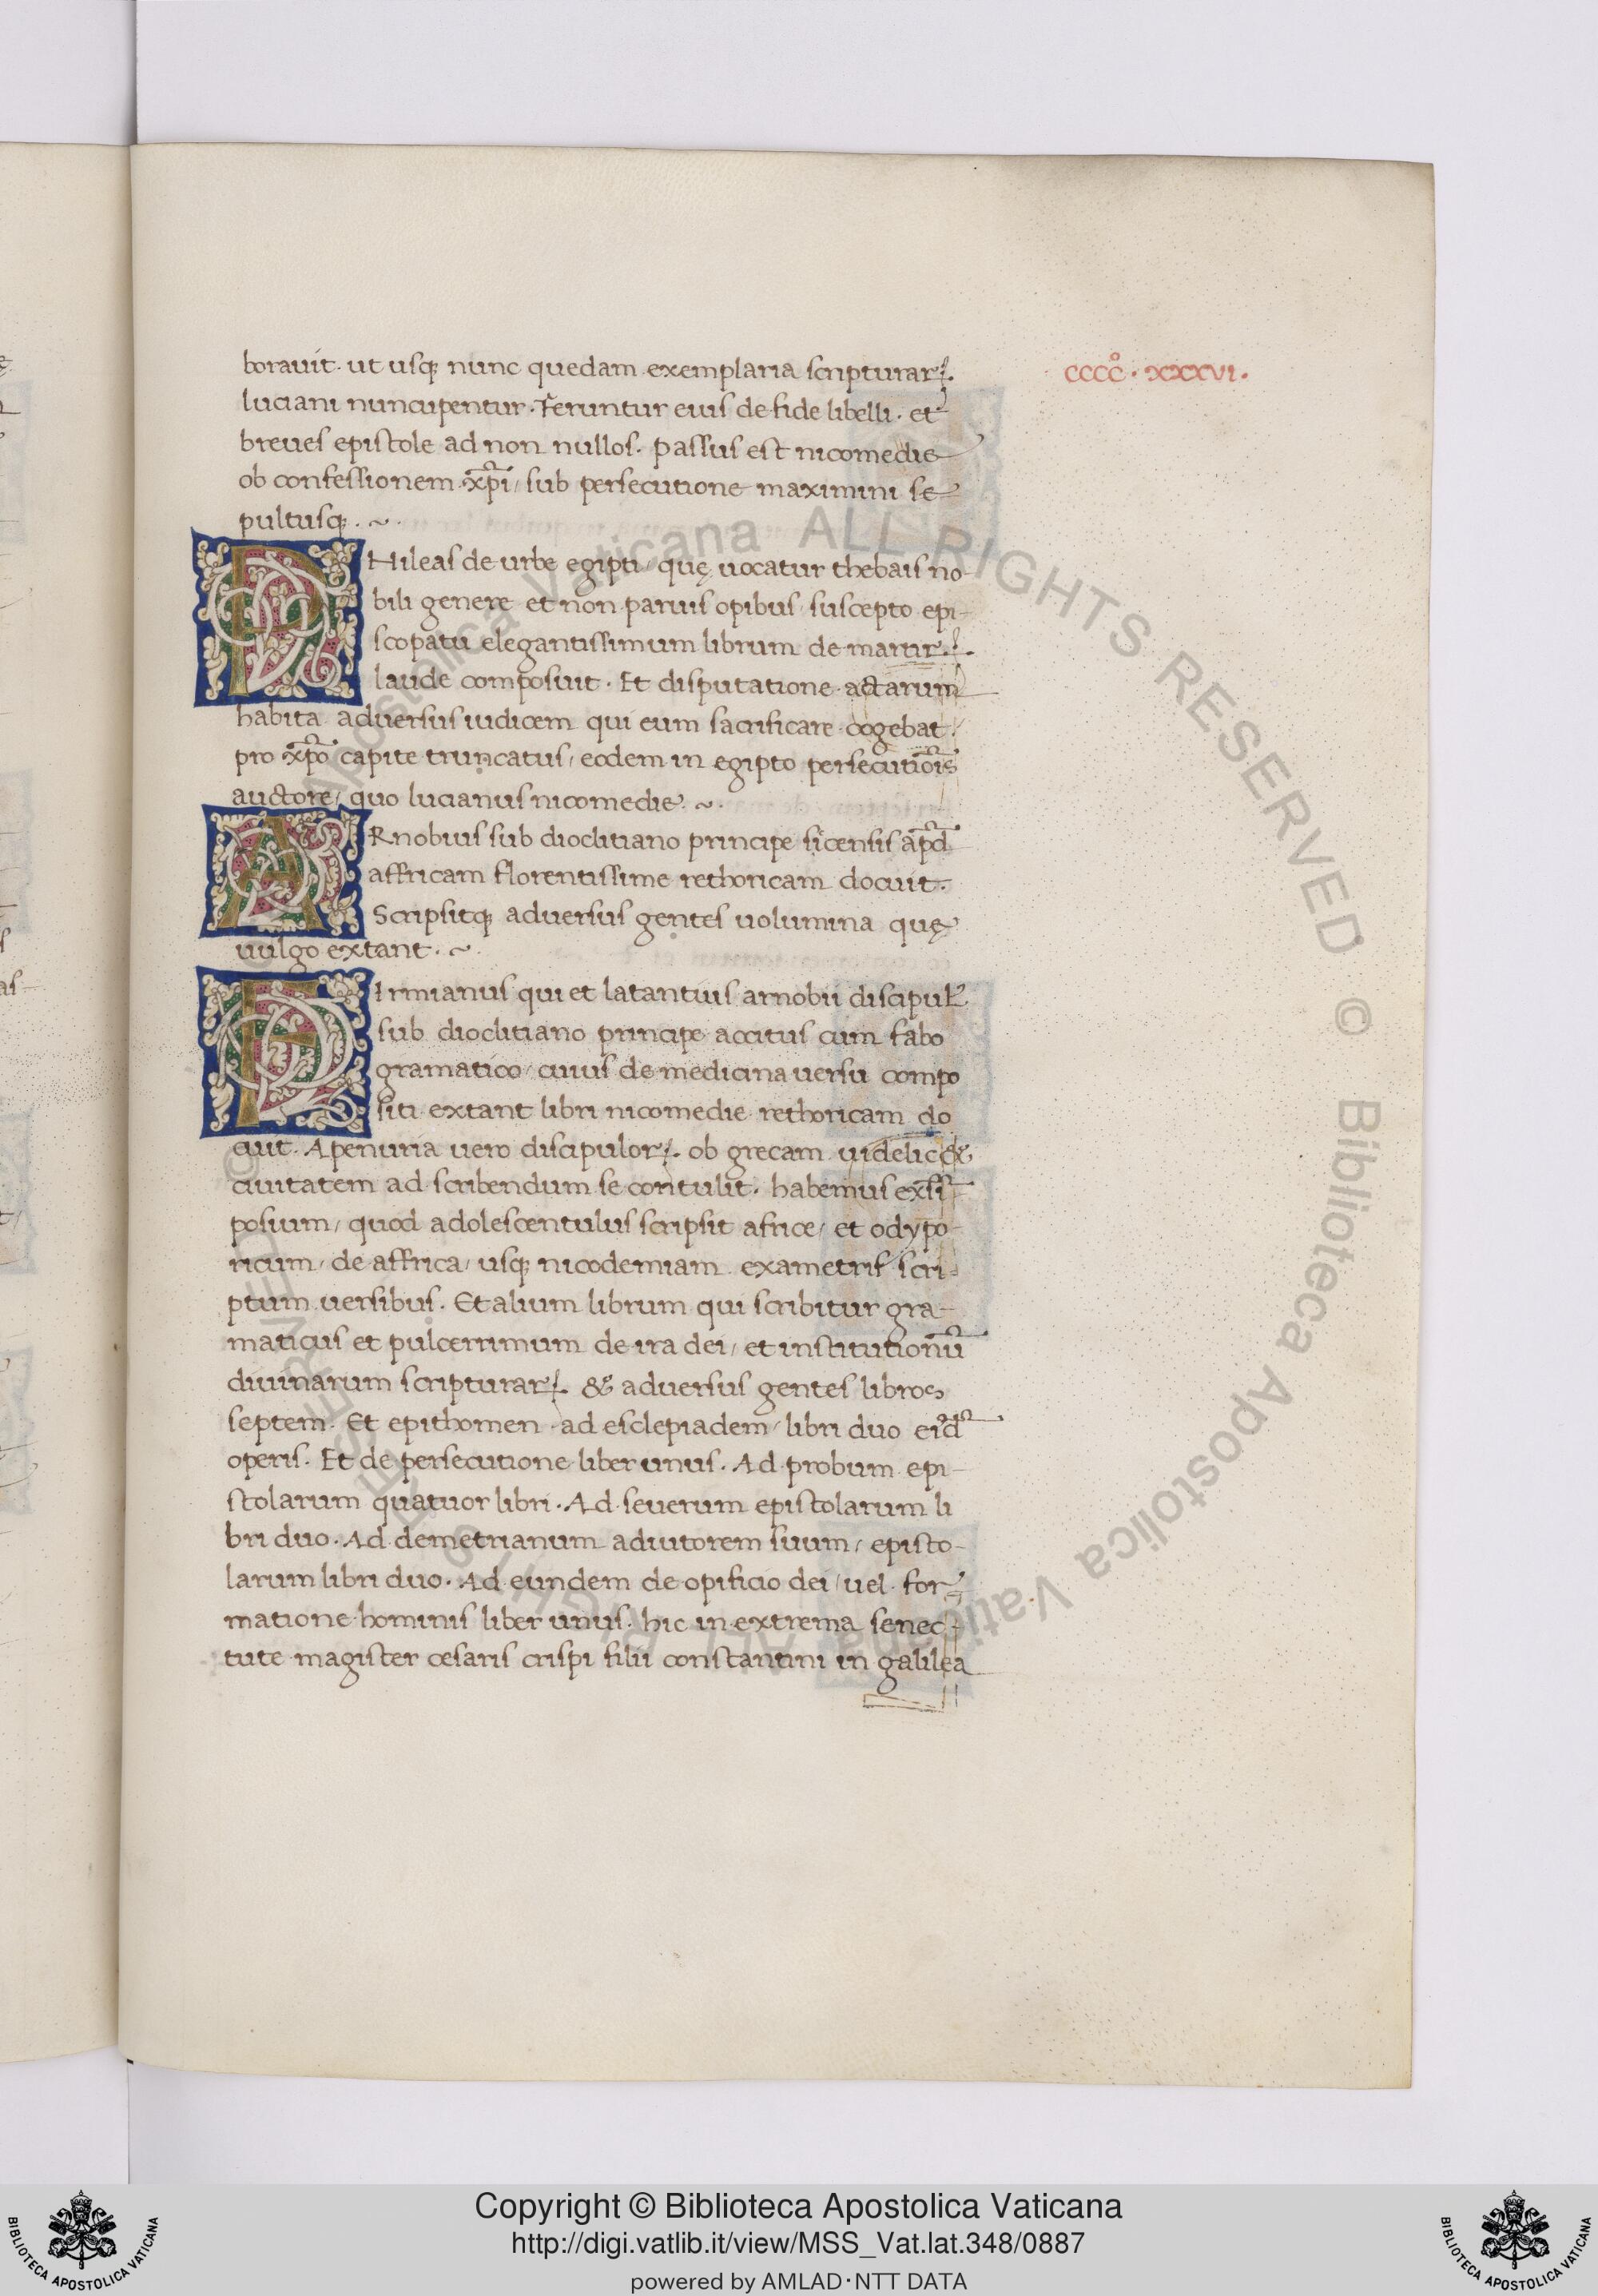 borauit. ut usq; nunc quedam exemplaria scripturarꝝ.
CCCC° . XXXVI .
luciani nuncupentur. Feruntur eius de fide libelli. et
breues epistole ad non nullos. passus est nicomedie
ob confessionem xp̄i, sub persecutione maximini se
pultusq; . ~ .
PHileas de urbe egipti, quę uocatur thebais no-
bili genere et non paruis opibus, suscepto epi-
scopatu elegantissimum librum de martirꝝ.
laude composuit. Et disputatione actarum
habita aduersus iudicem qui eum sacrificare cogebat.
pro xp̄o capite truncatus, eodem in egipto persecutiōis
auctore, quo lucianus nicomedie. ~ .
ARnobius sub dioclitiano principe sicensis ap̄d
affricam florentissime rethoricam docuit.
Scripsitq; aduersus gentes uolumina quę
uulgo extant. ~ .
FIrmianus qui et latantius arnobii discipul᾽
sub dioclitiano principe accitus cum fabo
gramatico, cuius de medicina uersu compo
siti extant libri nicomedie rethoricam do
cuit. A penuria uero discipulorꝝ. ob grecam uidelic&
ciuitatem ad scribendum se contulit. habemus ex sī
posium, quod adolescentulus scripsit africe, et odypo-
ricum, de affrica, usq; nicodemiam exametris scri-
ptum uersibus. Et alium librum qui scribitur gra-
maticus et pulcerrimum de ira dei, et institutionū
diuinarum scripturarꝝ. & aduersus gentes libros
septem. Et epithomen ad esclepiadem, libri duo eīd
operis. Et de persecutione liber unus. Ad probum epi-
stolarum quatuor libri. Ad seuerum epistolarum li
bri duo. Ad demetrianum adiutorem suum, episto-
larum libri duo. Ad eundem de opificio dei, uel for-
matione hominis liber unus. hic in extrema senec-
tute magister cesaris crispi filii constantini in galilea
© Biblioteca Apostolica Vaticana ALL RIGHTS RESERVED © Biblioteca Apostolica Vaticana ALL RIGHTS RESERVED
BIBLIOTECA APOSTOLICA VATICANA
Copyright © Biblioteca Apostolica Vaticana
http://digi.vatlib.it/view/MSS_Vat.lat.348/0887
powered by AMLAD·NTT DATA
BIBLIOTECA APOSTOLICA VATICANA